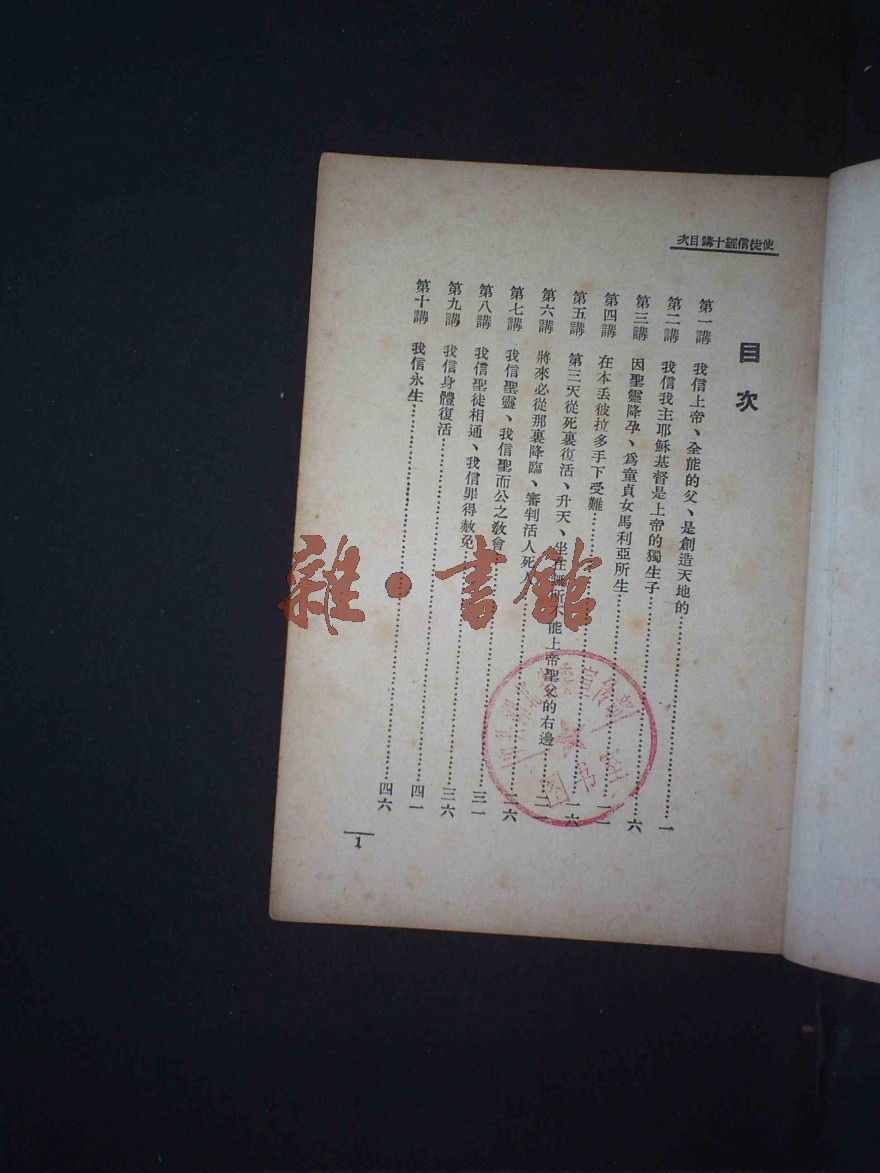 使徒信經十講目次
目次
第一講 我信上帝、全能的父、是創造天地的……一
第二講 我信我主耶穌基督是上帝的獨生子……六
第三講 因聖靈降孕、爲童貞女馬利亞所生……一一
第四講 在本丟彼拉多手下受難……一六
第五講 第三天從死裏復活、升天、坐在無所不能上帝聖父的右邊……二一
第六講 將來必從那裏降臨、審判活人死人……二六
第七講 我信聖靈、我信聖而公之教會……三一
第八講 我信聖徒相通、我信罪得赦免……三六
第九講 我信身體復活……四一
第十講 我信永生……四六
1
雜·書館
宣傳部
图书室